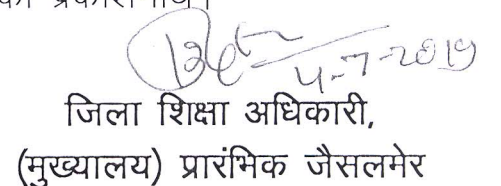 4-7-2019
जिला शिक्षा अधिकारी,
(मुख्यालय) प्रारंभिक जैसलमेर